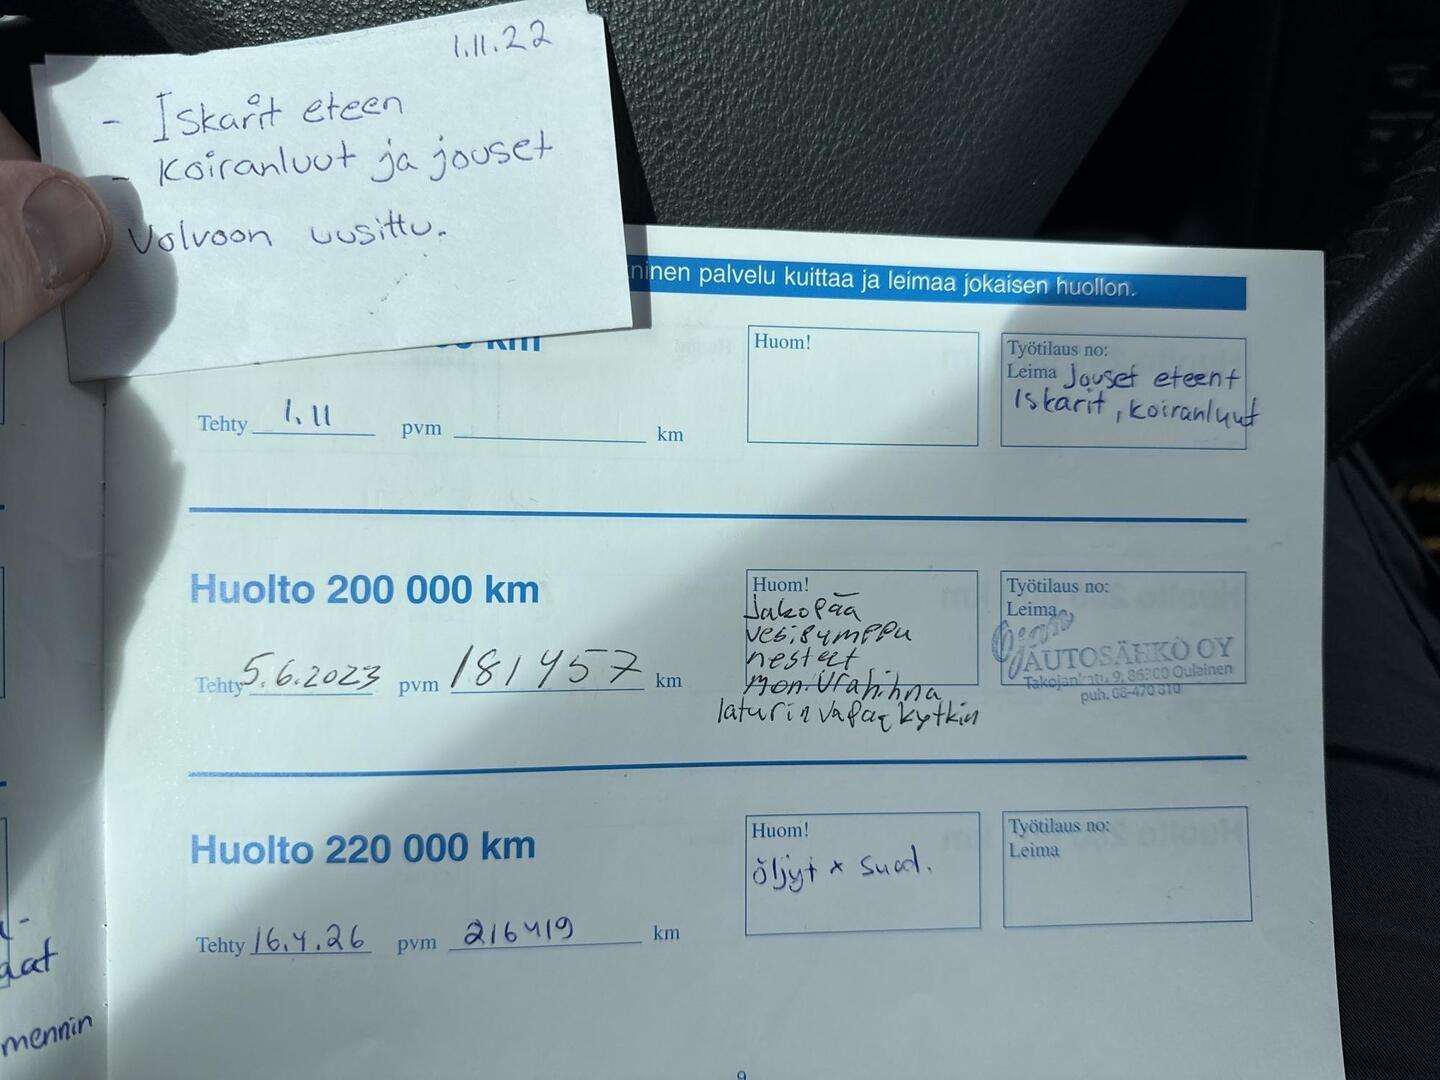 1.11.22
- Iskarit eteen
- koiranluut ja jouset
Volvoon uusittu.
ninen palvelu kuittaa ja leimaa jokaisen huollon.
km
Tehty 1.11 pvm km
Huom!
Työtilaus no:
Leima Jouset eteent
Iskarit, koiranluut
Huolto 200 000 km
Tehty 5.6.2023 pvm 181457 km
Huom!
Jakopää
vesipumppu
nesteet
mon.urahihna
laturin vapaakytkin
Työtilaus no:
Leima
AUTOSÄHKÖ OY
Takojankatu 9, 86300 Oulainen
puh. 08-470 810
Huolto 220 000 km
Tehty 16.4.26 pvm 216419 km
Huom!
öljyt x suod.
Työtilaus no:
Leima
mennin
9